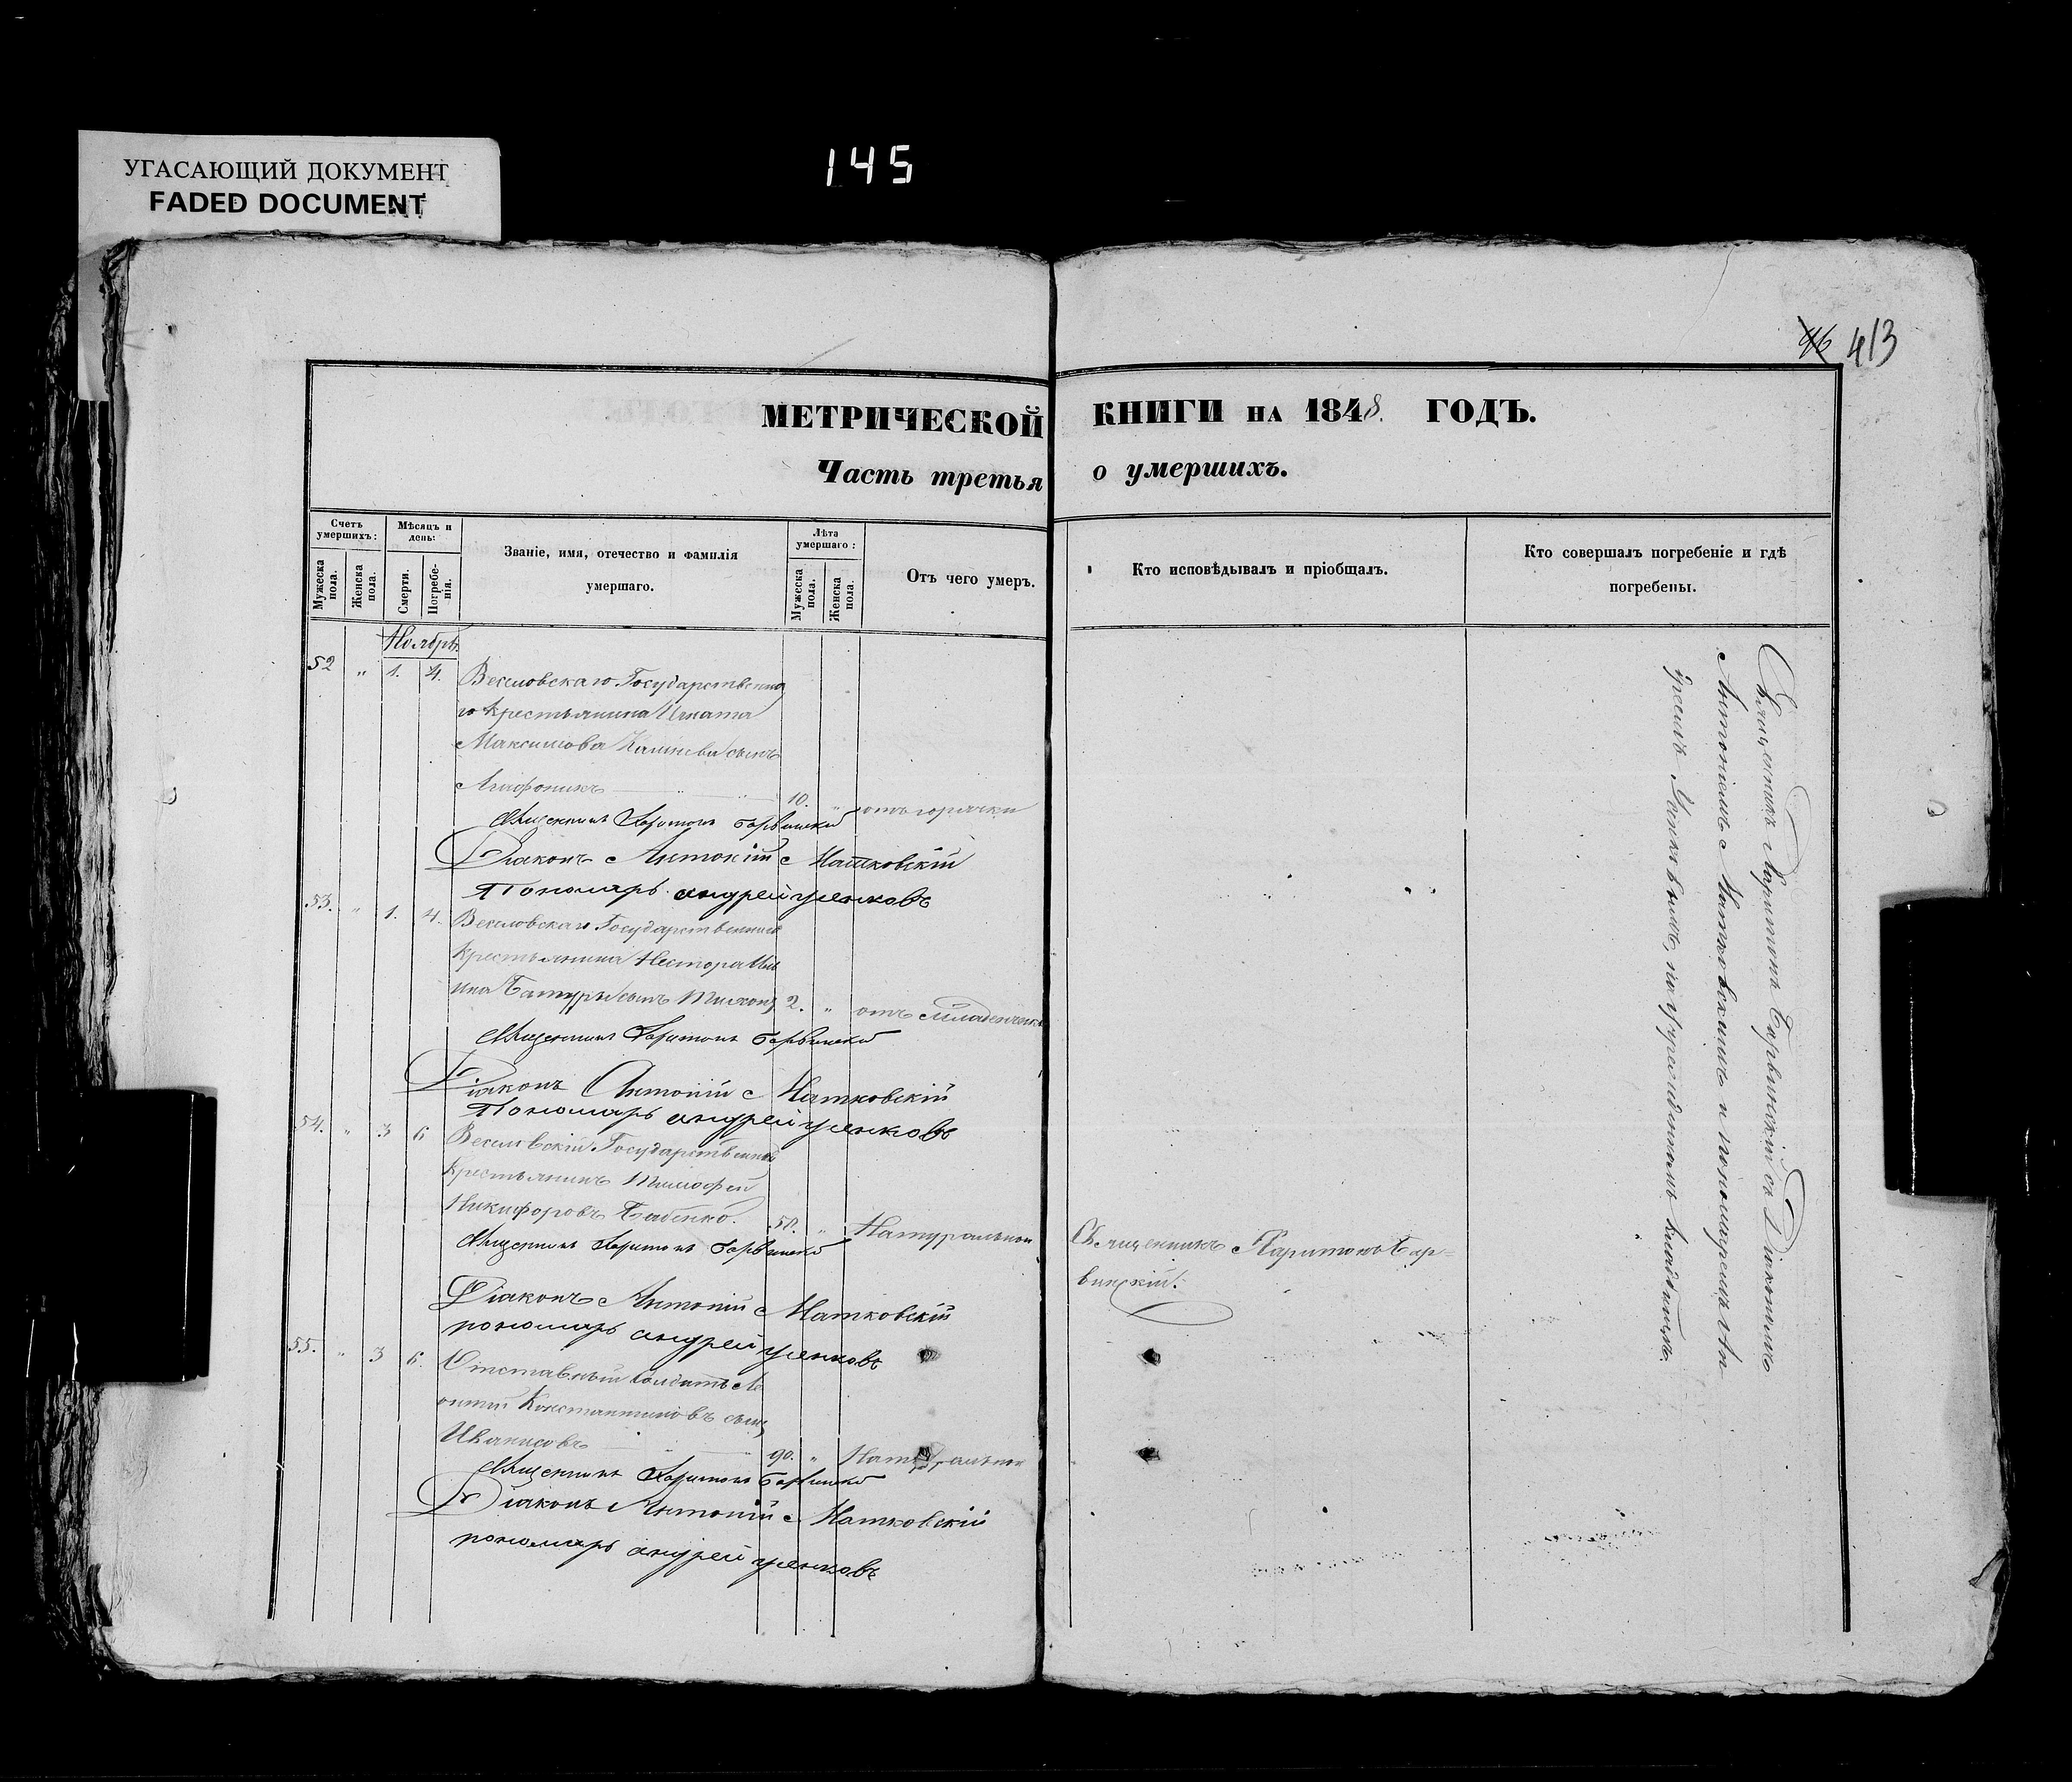 УГАСАЮЩИЙ ДОКУМЕНТ
FADED DOCUMENT
145
96 413
МЕТРИЧЕСКОЙ КНИГИ НА 1848. ГОДЪ.
Часть третья о умершихъ.
Счетъ умершихъ:
Мужеска пола.
Женска пола.
Мѣсяцъ и день:
Смерти.
Погребенія.
Званіе, имя, отечество и фамилія
умершаго.
Лѣта умершаго:
Мужеска пола.
Женска пола.
Отъ чего умеръ.
Кто исповѣдывалъ и пріобщалъ.
Кто совершалъ погребеніе и гдѣ
погребены.
Ноябрь
52 " 1. 4. Веселовскаго Государственна
го крестьянина Игната
Максимова сынъ
Агафоникъ 10. " отъ горячки
Священникъ Харитонъ Барвинскій
Діаконъ Антоній Матковскій
Пономарь андрей Уенковъ
53. " 1. 4. Веселовскаго Государственнаго
Крестьянина Нестора
сынъ Тихонъ 2. " отъ младенческ
Священникъ Харитонъ Барвинскій
Діаконъ Антоній Матковскій
Пономарь андрей Уенковъ
54. " 3 6 Веселовскій Государственный
Крестьянинъ Тимофей
Никифоровъ Бабенко. 58. " Натуральною
Священникъ Харитонъ Барвинскій
Священникъ Харитонъ Бар=
винскій.
Діаконъ Антоній Матковскій
пономарь андрей Уенковъ
55. " 3 6. Отставный солдатъ Ле
онтій Константиновъ сынъ
Иванисовъ 90. " Натуральною
Священникъ Харитонъ Барвинскій
Діаконъ Антоній Матковскій
пономарь андрей Уенковъ
Священникъ Харитонъ Барвинскій съ Діакономъ
Антоніемъ Матковскимъ и пономаремъ Ан
дреемъ Уенковымъ, на учрежденномъ кладбищѣ.